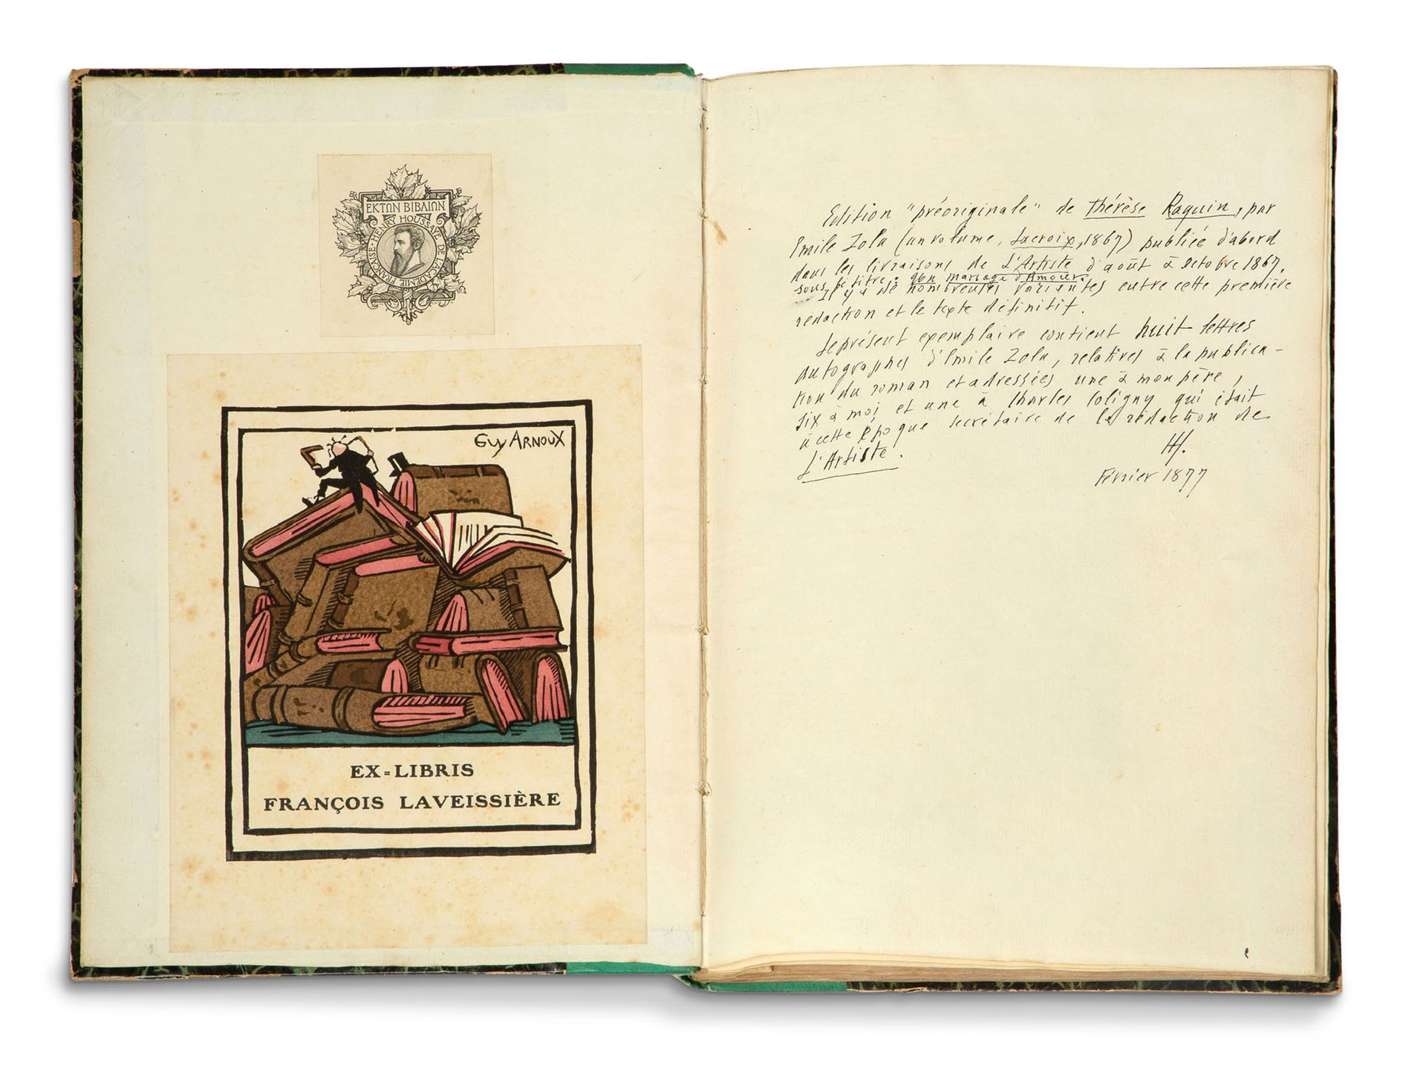 ΕΚΤΩΝ ΒΙΒΛΙΩΝ
HENRY HOUSSAYE DE L'ACADÉMIE FRANÇAISE
GUY ARNOUX
EX=LIBRIS
FRANÇOIS LAVEISSIÈRE
Edition "préoriginale" de Thérèse Raquin, par
Emile Zola (un volume, Lacroix, 1867) publiée d'abord
dans les livraisons de L'Artiste d'août à octobre 1867.
sous le titre: Un mariage d'Amour.
Il y a de nombreuses variantes entre cette première
rédaction et le texte définitif.
Le présent exemplaire contient huit lettres
autographes d'Emile Zola, relatives à la publica-
tion du roman et adressées une à mon père,
six à moi et une à Charles Coligny qui était
à cette époque secrétaire de la rédaction de
L'Artiste.
HH.
Février 1877